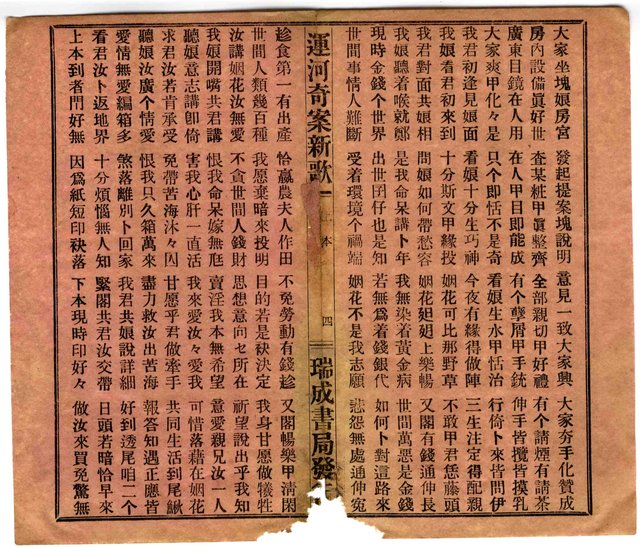 大家坐塊娘房宮 發起提案塊說明 意見一致大家興 大家夯手化贊成
房內設備眞好世 查某粧甲眞整齊 全部親切甲好禮 有个請煙有請茶
廣東目鏡在人用 在人甲目即能成 有个孽屑甲手銃 伸手皆攬皆摸乳
大家爽甲化々是 只个即恬不是奇 看娘生水甲恬治 行倚卜來皆問伊
我君初逢見娘面 看娘十分生巧神 今夜有緣得做陣 三生注定得配親
我娘看君初來到 十分斯文甲緣投 姻花可比那野草 不敢甲君恁藤頭
我君對面共娘相 問娘如何帶愁容 姻花妲妲上樂暢 又閣有錢通伸長
我娘聽着喉就鄭 是我命呆講卜年 我無染着黃金病 世間萬惡是金錢
現時金錢个世界 出世囝仔也是知 若無為着錢銀代 如何卜對這路來
世間事情人難斷 受着環境个禍端 姻花不是我志願 悲怨無處通伸寃
運河奇案新歌 上本 四 瑞成書局發
趁食第一有出產 恰贏農夫人作田 不免勞動有錢趁 又閣暢樂甲清閑
世間人類幾百種 我愿棄暗來投明 目的若是袂決定 我身甘愿做犧牲
汝講姻花汝無愛 不貪世間人錢財 思想意向セ所在 祈望說出乎我知
我娘開嘴共君講 恨我命呆嫁無尫 賣淫我本無希望 意愛親兄汝一人
聽娘意志講即倚 害我心肝一直活 我來愛汝々愛我 可惜落藉在姻花
求君汝若肯承受 免帶苦海沐々囚 甘愿乎君做牽手 共同生活到尾鰍
聽娘汝廣个情愛 恨我只久箱萬來 盡力救汝出苦海 報答知遇正應皆
愛情無愛編箱多 煞落離別卜回家 我君共娘說詳細 好到透尾咱二个
看君汝卜返地界 十分煩惱無人知 緊閣共君汝交帶 日頭若暗恰早來
上本到者鬥好無 因爲紙短印袂落 下本現時印好々 做汝來買免驚無